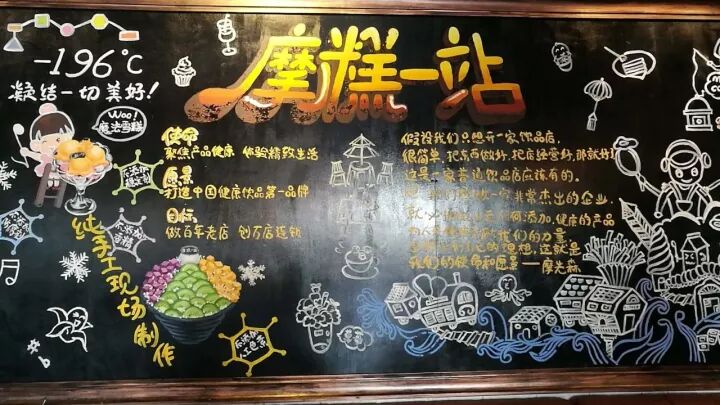 -196℃
凝结一切美好!
Woo!
魔法雪糕
摩糕一站
使命
聚焦产品健康 体验精致生活
愿景
打造中国健康饮品第一品牌
目标
做百年老店 创万店连锁
假设我们只想开一家饮品店,
很简单,把东西做好,把店经营好,那就好!
这是一家普通饮品店应该有的。
一家非常杰出的企业,
就必 任何添加,健康的产品
我们的力量
的理想,这就是
我们的使命和愿景——摩先森
纯手工现场制作
不添加
人工色素